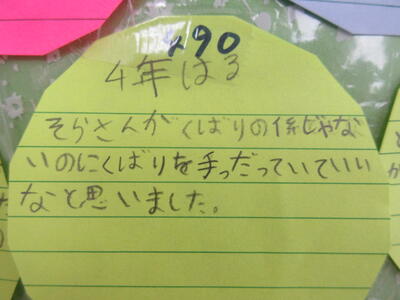 490
4年はる
そらさんがくばりの係じゃな
いのにくばりを手つだっていていい
なと思いました。